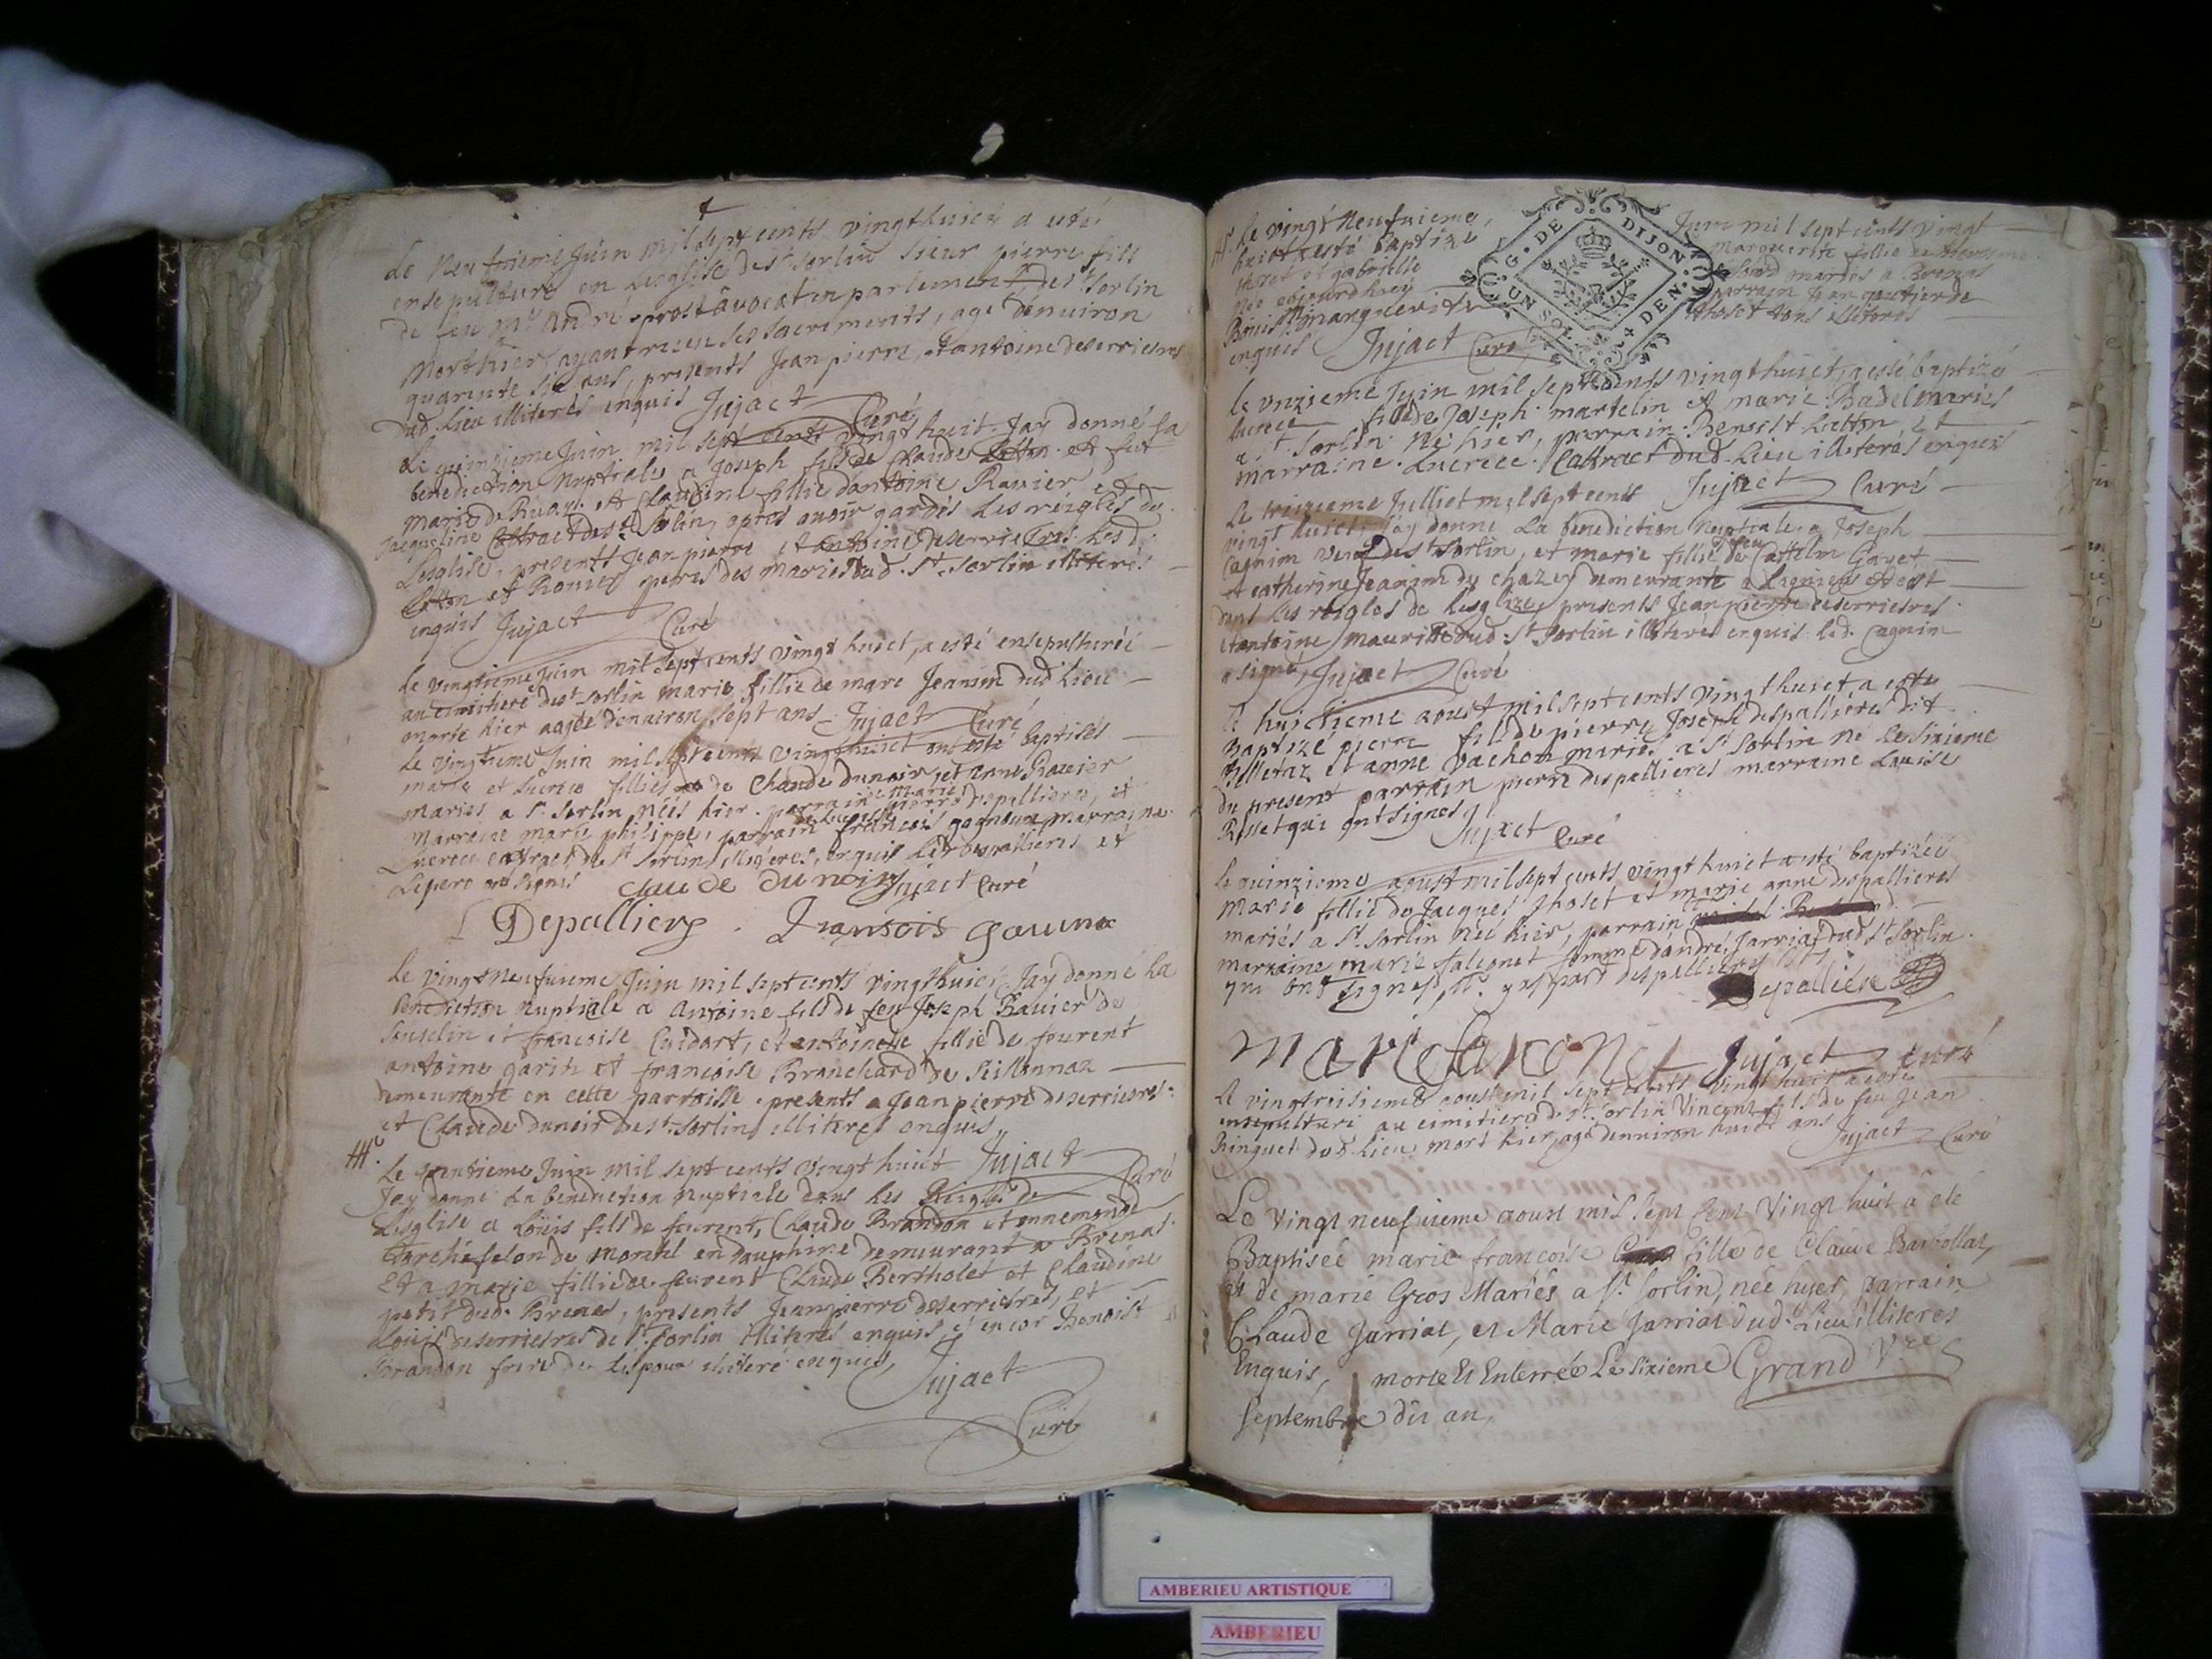 Le neufvieme Juin mil sept cents vingt huict a esté
ensepulturé en Lesglise de st sorlin sieur pierre fils
de feu mr andré prost âvocat en parlement de st sorlin
mort hier, ayant receu ses sacrements, agé denuiron
quarente six ans, presents Jean pierre, et antoine deserriesres
dud. Lieu illiterés enquis Jujact Curé
Le quinzieme Juin mil sept cents vingt huit Jay donné La
benediction nuptiale a Joseph fils de Claude et feüe
marie de Ruay et Claudine fillie dantoine Ravier et
Jacqueline Cottract de st Sorlin, apres avoir gardés Les reigles de
Lesglise, presents Jean pierre et antoine deserriesres Lesd.
et Ravier peres des mariés dud. St Sorlin illiterés
enquis Jujact Curé
Le vingtieme Juin mil sept cents vingt huict, a esté ensepulturée
au cimitiere de st sorlin marie fillie de marc Jeanin dud Lieu
morte hier agée denuiron sept ans Jujact Curé
Le vingtieme Juin mil sept cents vingt huict ont esté baptisés
marie et Lucrece fillies de Claude dunoir, et anne Ravier
mariés a st Sorlin Néés hier parrain de marie pierre despallieres, et
marraine marie philippe, parrain de Lucrece francois gagneux marraine
Lucrece cottract de st Sorlin illiteres, enquis Led despallieres et
Le pere ont signés claude dunoir Jujact Curé
Depalliers. fransois gaunox
Le vingt neufuieme Juin mil sept cents vingt huict Jay donné La
benediction nuptiale a antoine fils de feu Joseph Ravier de
Souclin et francoise Cuidart, et antoinette fillie de feurent
antoine garin et francoise Branchard de Sillonnaz
demeurante en cette parroisse. presents a Jean pierre deserriesres
et Claude dunoir de st Sorlin illiteres enquis
Le trentieme Juin mil sept cents vingt huict Jujact Curé
Jay donné La benediction nuptiale dans Les Reigles de
Lesglise a Loüis fils de feurent, Claude Brandon et annemonde
de montel en dauphiné demeurant a Brenas
Et a marie fillie de feurent Claude Bertholet et Claudine
petit dud. Brenas, presents Jean pierre deserriesres, et
Loüis deserriesres de st Sorlin illiterés enquis et encor Benoist
Brandon frere de Lespoux illiteré enquis,
Jujact
Curé
Le vingt neufuieme Juin mil sept cents vingt
huict a esté baptizé marguerite fillie
thoset et gabrielle mariés a Brenas
née aujourdhuy parrain Jean gautier de
marguerite thoset tous illiterés
enquis Jujact Curé
G. DE DIJON.
UN SOL 4 DEN.
Le unzieme Juin mil sept cents vingt huict, a esté baptizé
Lucrece fille de Joseph martelin et marie Badel mariés
a st Sorlin né hier, parrain Benoist Latton, et
marraine Lucrece Cottract dud. Lieu illiterés enquis
Le treizieme Julliet mil sept cents Jujact Curé
vingt huict Jay donné La benediction nuptiale a Joseph
Cagnin de st Sorlin, et marie fillie de feu Cattelin Gayet
et catherine Jeanin de chazey demeurante a Lagnieu et est
dans Les reigles de Lesglize, presents Jean pierre deserriesres
et antoine mauritte dud. st Sorlin illiterés enquis Led. Cagnin
a signé, Jujact Curé
Le huictieme aoust mil sept cents vingt huict a esté
Baptizé pierre fils de pierre Joseph despallieres dit
Billetaz et anne vachon mariés a st Sorlin né Le sixieme
du present parrain pierre despallieres marraine Louise
Rosset qui ont signés, Jujact Curé
Le quinzieme aoust mil sept cents vingt huict a esté baptizée
marie fillie de Jacques thoset et marie anne despallieres
mariés a st Sorlin née hier, parrain
marraine marie falconet femme dandré Jarriat dud st Sorlin
qui ont signes, Sr gaspard despallieres
Depalliere
marie falconet Jujact curé
Le vingtroisieme aoust mil sept cents vingt huit a esté
ensepulturé au cimitiere de st Sorlin Vincent fils de feu Jean
Ringuet dud. Lieu mort hier, agé denuiron huict ans Jujact Curé
Le vingt neufuieme aoust mil sept Cent Vingt huit a été
Baptisée marie francoise fille de Claude Barbollat,
et de marie Gros Mariés a st Sorlin, née hyer, parrain
Claude Jarriat, et Marie Jarriat dud. Lieu illiteres
Enquis, morte Et Enterrée Le sixieme Grand Vre
septembre du an,
AMBERIEU ARTISTIQUE
AMBERIEU